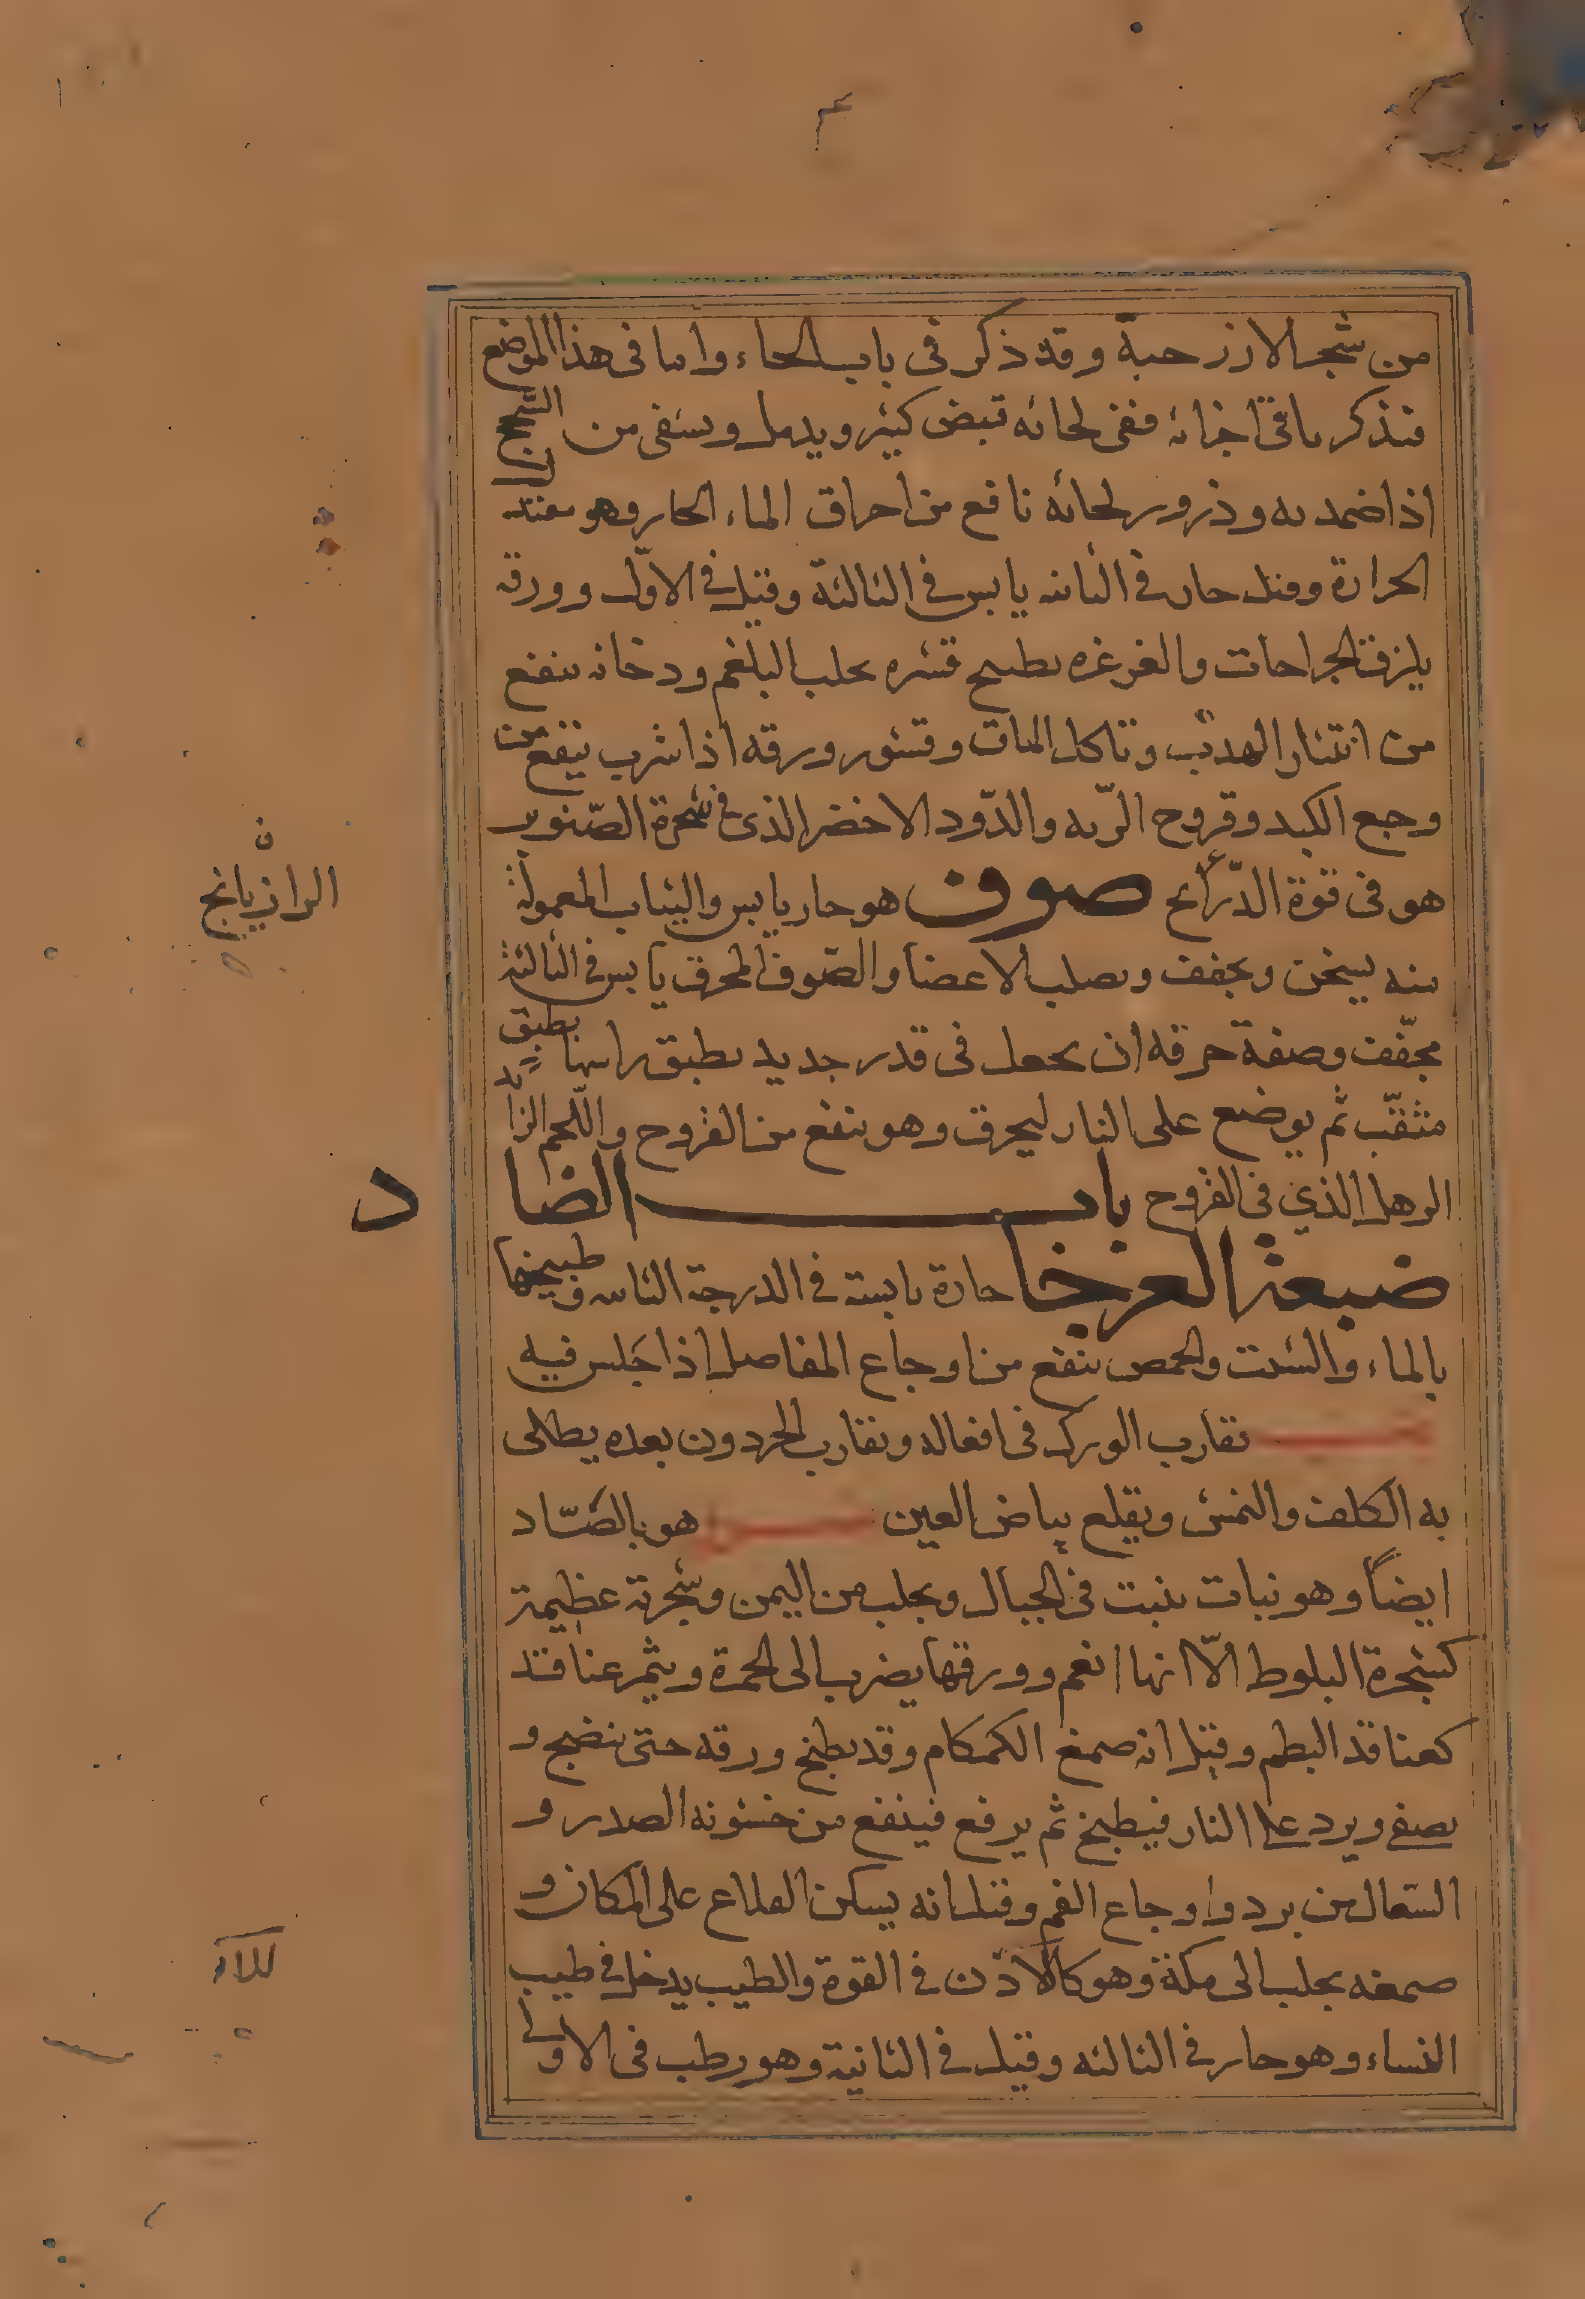 من شجر الارز حبة وقد ذكر فى باب الحاء واما فى هذا الموضع
فنذكر باقى اجزائه ففى لحائه قبض كثير ويدمل ويشفى من السحج
اذا ضمد به وذرور لحائه نافع من احراق الماء الحار وهو معتدل
الحرارة وقيل حار فى الثانيه يابس فى الثالثة وقيل فى الاول وورقه
يلزق الجراحات والغرغره بطبيخ قشره يجلب البلغم ودخانه ينفع
من انتثار الهدب وتاكل الماق وقشور ورقه اذا شرب ينفع من
وجع الكبد وقروح الريه والدّود الاخضر الذى فى شجرة الصّنوبر
هو فى قوة الذّرائح صوف هو حار يابس والثياب المعمولة
منه يسخن ويجفف ويصلب الاعضا والصّوف المحرق يابس فى الثالثة
مجفّف وصفة حرقه ان يجعل فى قدر جديد يطبق راسها بطبق
مثقّب ثم يوضع على النار ليحرق وهو ينفع من القروح واللّحم الزائد
الرهل الذي فى القروح باب الضاد
ضبعة العرجا حارة يابسة فى الدرجة الثانيه وطبيخها
بالماء والشبت والحمص ينفع من اوجاع المفاصل اذا جلس فيه
تقارب الورك فى افعاله وتقارب الحردون بعده يطلى
به الكلف والنمش ويقلع بياض العين هو بالصّاد
ايضاً وهو نبات ينبت فى الجبال ويجلب من اليمن وشجرته عظيمة
كشجرة البلوط الّا انها انعم وورقها يضرب الى الحمرة ويثمر عناقيد
كعناقيد البطم وقيل انه صمغ الكمكام وقد يطبخ ورقه حتى ينضج و
يصفى ويرد على النار فيطبخ ثم يرفع فينفع من خشونه الصدر و
السّعال من برد واوجاع الفم وقيل انه يسكن القلاع على المكان و
صمغه يجلب الى مكة وهو كاللّادن فى القوة والطيب يدخل فى طيب
النساء وهو حار فى الثالثه وقيل فى الثانية وهو رطب فى الاولى
ن
الرازيانج